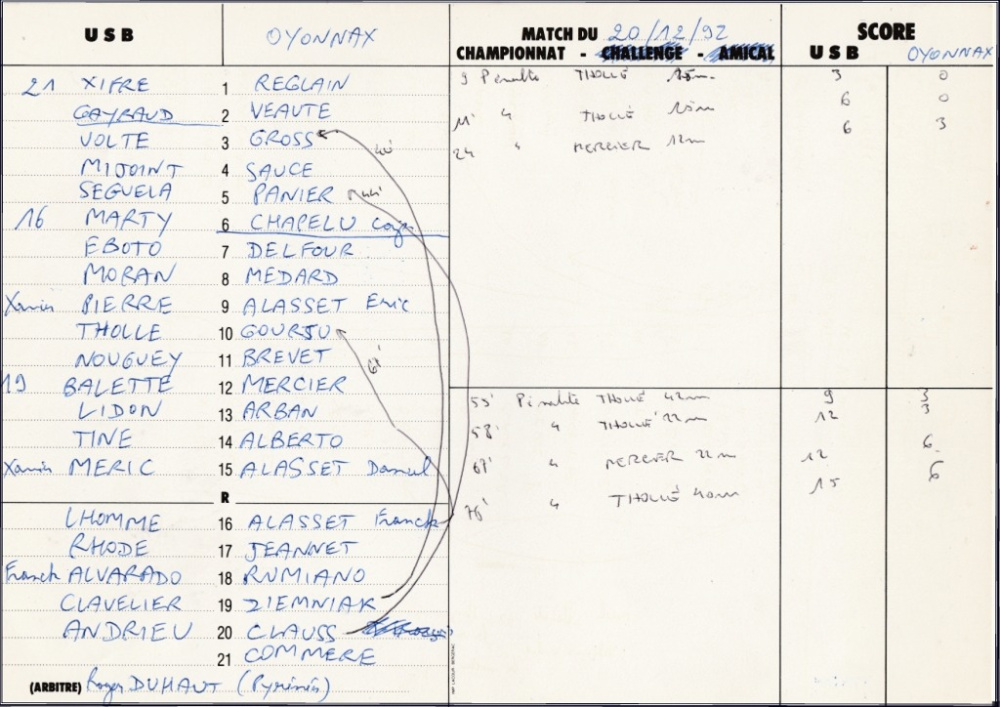 USB OYONNAX MATCH DU 20/12/92 SCORE
CHAMPIONNAT - CHALLENGE - AMICAL USB OYONNAX
21 XIFRE 1 REGLAIN
GAYRAUD 2 VEAUTE
VOLTE 3 GROSS
MIJOINT 4 SAUCE
SEGUELA 5 PANIER
16 MARTY 6 CHAPELU Cap
EBOTO 7 DELFOUR
MORAN 8 MEDARD
Xavier PIERRE 9 ALASSET Eric
THOLLE 10 GOURJU
NOUGUEY 11 BREVET
19 BALETTE 12 MERCIER
LIDON 13 ARBAN
TINE 14 ALBERTO
Xavier MERIC 15 ALASSET Daniel
R
LHOMME 16 ALASSET Franck
RHODE 17 JEANNET
Franck ALVARADO 18 RUMIANO
CLAVELIER 19 ZIEMNIAK
ANDRIEU 20 CLAUSS
21 COMMERE
(ARBITRE) Roger DUHAUT (Pyrénées)
67'
9 Pénalité THOLLÉ 15m 3 0
11' " THOLLÉ 15m 6 0
24 " MERCIER 12m 6 3
55' Pénalité THOLLÉ 42m 9 3
58' " THOLLÉ 22m 12 3
67' " MERCIER 22m 12 6
76' " THOLLÉ 40m 15 6